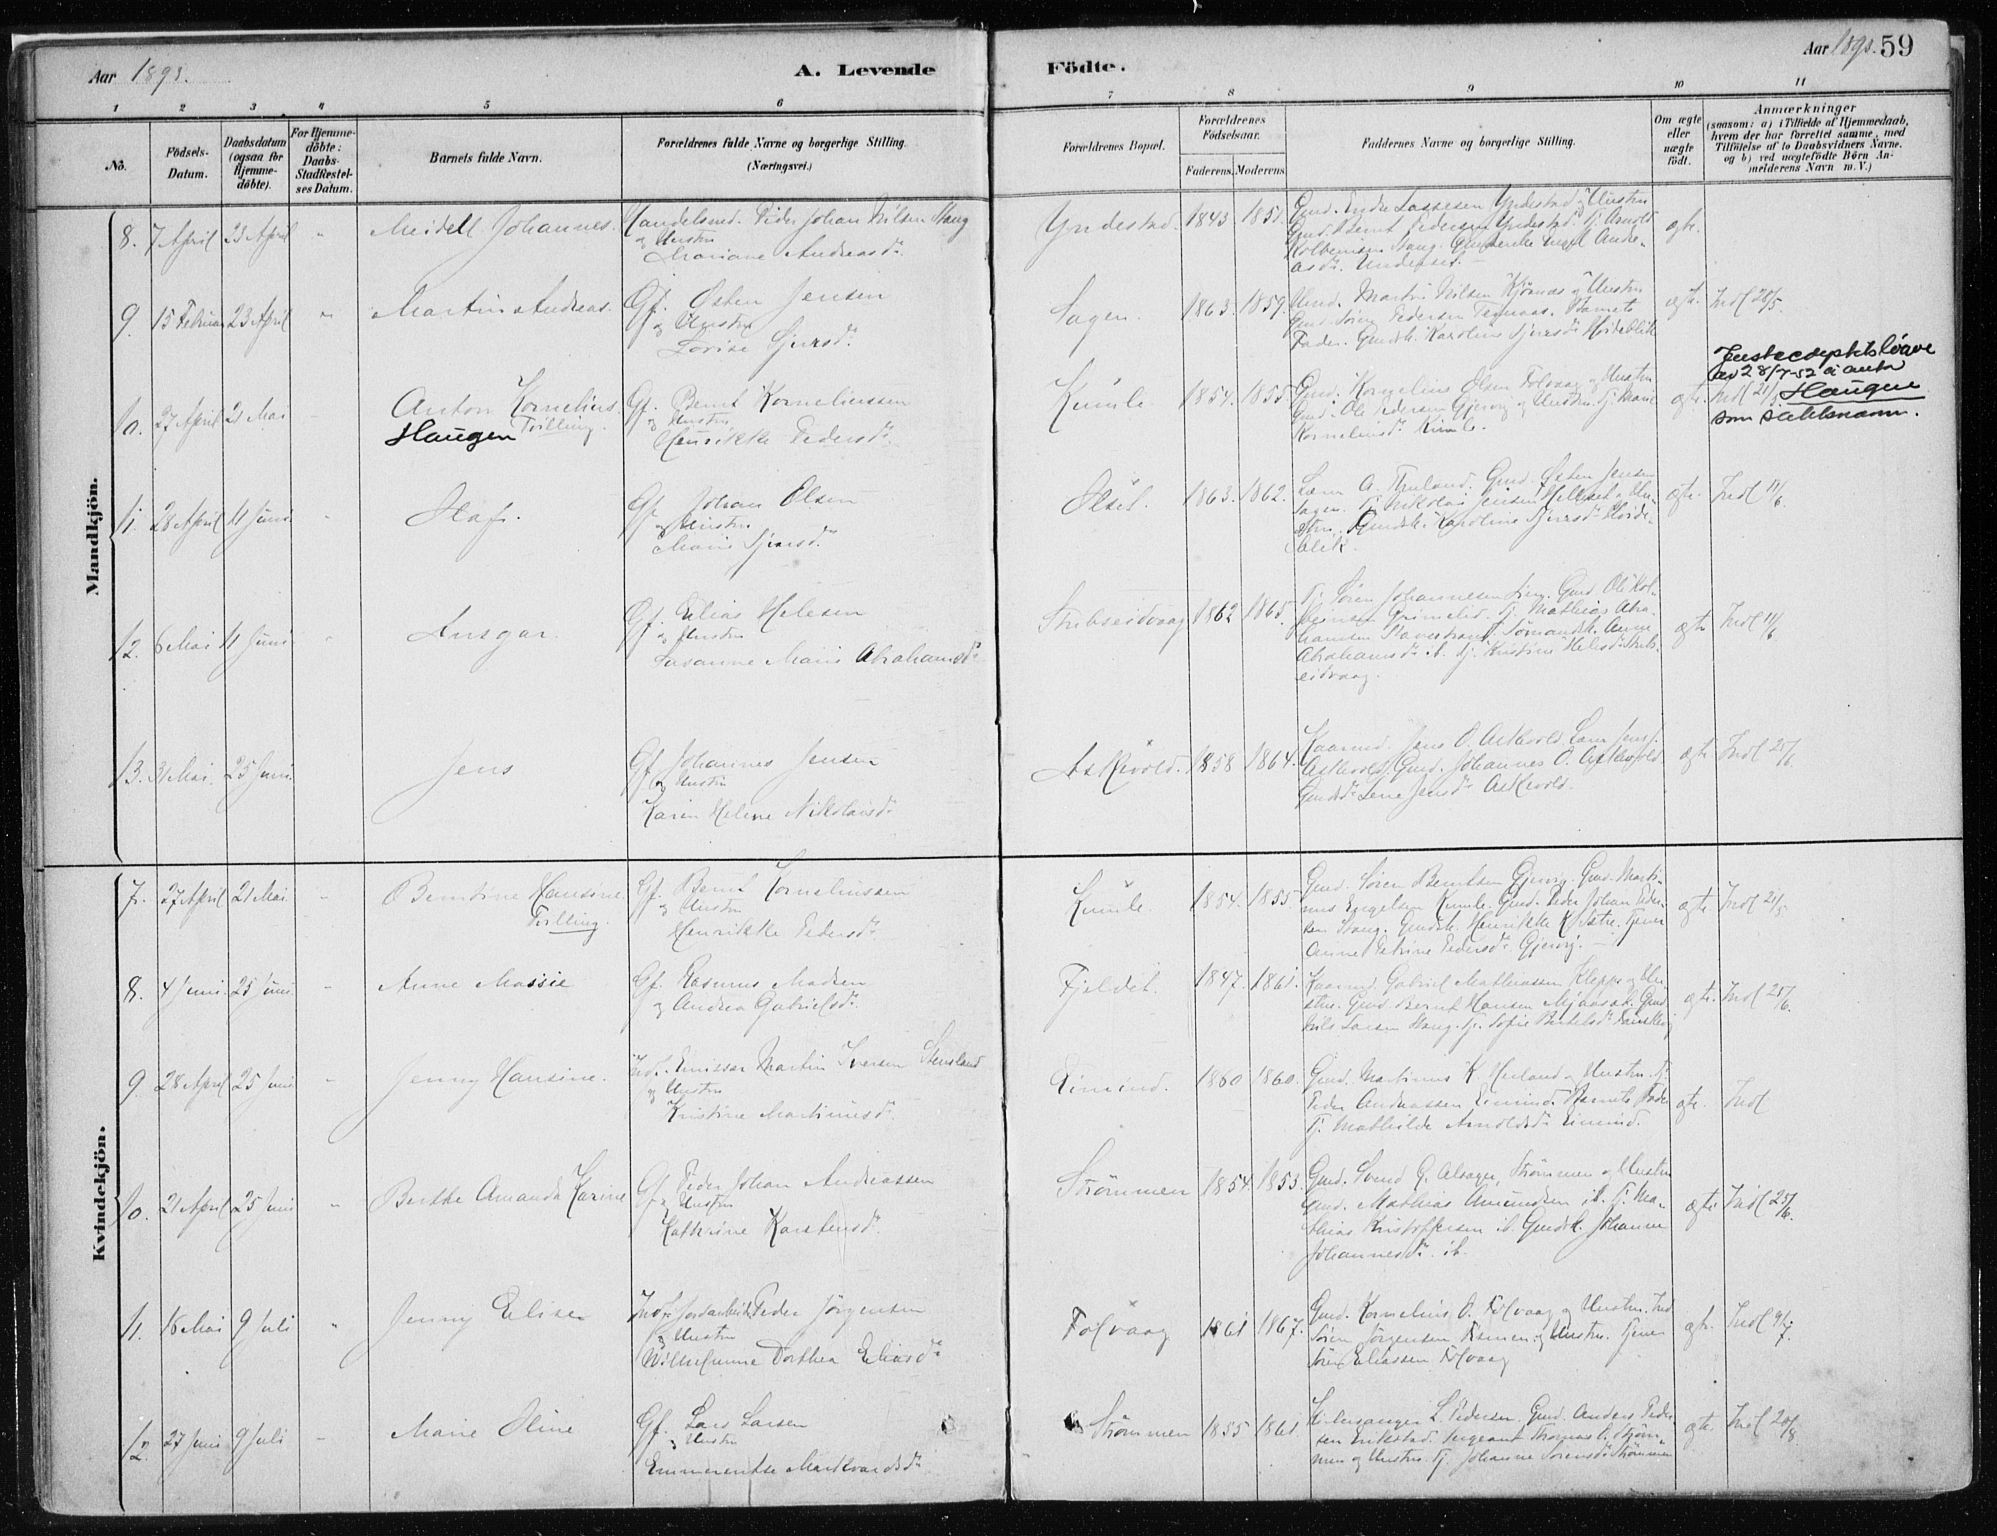 Aar 1893.
A. Levende
Födte.
Aar 1893. 59
1 2 3 4 5 6 7 8 9 10 11
No.
Födsels-
Datum.
Daabsdatum
(ogsaa for
Hjemme-
döbte).
For Hjemme-
döbte:
Daabs-
Stadfæstel-
ses Datum.
Barnets fulde Navn.
Forældrenes fulde Navne og borgerlige Stilling.
(Næringsvei.)
Forældrenes Bopæl.
Forældrenes
Födselsaar.
Faderens. Moderens.
Faddernes Navne og borgerlige Stilling.
Om ægte
eller
uægte
födt.
Anmærkninger
(saasom: a) i Tilfælde af Hjemmedaab,
hvem der har forrettet samme, med
Tilföielse af to Daabsvidners Navne.
og b) ved uægtefödte Börn An-
melderens Navn m.V.)
Mandkjön.
8. 7 April 23 April " Meidell Johannes.
Handelsmd. Peder Johan Nilsen Stang
og Hustru
Mariane Andreasdr.
Yndestad. 1843 1851.
Gmd. Endre Lassesen Yndestad og Hustru
Gmd. Bernt Pedersen Yndestad. Tj. Arnold
Kolbeinsen Stang. Engel Andre-
asdr.
ægte.
9. 15 Februar 23 April " Martin Andreas.
Gf. Østen Jensen
og Hustru
Lovise Sjursdr.
Sagen. 1863. 1859.
Gmd. Martin Nilsen og Hustru
Gmd. Søren Pedersen Barnets
Fader. Gmdsk. Karoline Sjursdr. Høideblik
ægte. Indl 28/5.
10. 27 April 21 Mai Anton Kornelius.
Tvilling.
Haugen
Gf. Bernt Korneliussen
og Hustru
Henrikke Pedersdr.
Kumle 1854. 1855.
Gmd. Kornelius Olsen Folvaag og Hustru
Gmd. Ole Pedersen Gjervig og Hustru. Tj. Marie
Korneliusdr. Kumle.
ægte. Indl 21/5
av 28/7-52 å anta
Haugen
som slektsnavn.
11. 28 April 11 Juni " Olaf.
Gf. Johan Olsen
og Hustru
Marie Sjursdr.
Olset. 1863. 1862.
Gmd. Østen Jensen
Sagen. Tj. Nikolai Jensen Helleset og Hu-
stru. Gmdsk. Karoline Sjursdr. Høide-
blik.
ægte. Indl 11/6.
12. 6 Mai 11 Juni " Ansgar.
Gf. Elias Helesen
og Hustru
Susanne Marie Abrahamsdr.
Stubseidvaag 1862 1865.
Tj. Søren Johannesen Gmd. Ole Kol-
beinsen Grimelid. Tj. Mathias Abra-
hamsen Stavestrand. Sømandsk. Anne
Abrahamsdr. ib. Tj. Kristine Helesdr. Stub-
seidvaag.
ægte Indl 11/6
13. 31 Mai. 25 Juni. Jens
Gf. Johannes Jensen
og Hustru
Karen Helene Nikolaisdr.
Askevold. 1858 1864.
Kaarmd. Jens O. Askevold. Jens J.
Askevold, Gmd. Johannes O. Askevold
Gmdsdr. Lene Jensdr. Askevold.
ægte Indl 25/6.
Kvindekjön.
7. 27 April 21 Mai. " Berntine Hansine
Tvilling.
Gf. Bernt Korneliussen
og Hustru
Henrikke Pedersdr.
Kumle. 1854. 1855
Gmd. Søren Berntsen Gjervig. Gmd. Marti-
nus Engelsen Kumle. Gmd. Peder Johan Peder-
sen Stang. Gmdsk. Henrikke K. Sætre. Tjener
Anne Petrine Pedersdr. Gjervig.
ægte Indl 21/5
8. 4 Juni. 25 Juni. " Anne Massie
Gf. Rasmus Madsen
og Andrea Gabrielsdr.
Fjeldet. 1847. 1861.
Kaarmd. Gabriel Mathiassen Kleppe og Hu-
stru. Gmd. Bernt Hansen Gmd.
Nils Larsen Stang. Tj. Sofie
ægte. Indl 25/6.
9. 28 April 25 Juni " Jenny Hansine.
Inds. Emissær Martin Iversen Stensland
og Hustru
Kristine Martinusdr.
Eimind. 1860 1860.
Gmd. Martinus K. Herland og Hustru. Tj.
Peder Andreassen Eimind. Barnets Fader
Tj. Mathilde Arnoldsdr. Eimind.
ægte. Indl
10. 21 April 25 Juni " Berthe Amanda Karine
Gf. Peder Johan Andreassen
og Hustru
Kathrine Karstensdr.
Strømmen 1854. 1853.
Gmd. Svend G. Strømmen og Hustru
Gmd. Mathias Amundsen ib. Tj. Ma-
thias Kristoffersen ib. Gmdsk. Johanne
Johannesdr. ib.
ægte Indl 25/6.
11. 18 Mai 9 Juli " Jenny Elise
Inds. Jordarbeid. Peder Jørgensen
og Hustru
Wilhelmine Dorthea Eliasdr.
Folvaag 1861 1867.
Gmd. Kornelius O. Folvaag og Hustru. Ind.
Søren Jørgensen og Hustru. Tjener
Søren Eliassen Folvaag
ægte. Indl 9/7.
12. 27 Juni 9 Juli " Marie Oline
Gf. Lars Larsen
og Hustru
Emmerentse Markvardsdr.
Strømmen 1855 1861.
Kirkesanger L. Pedersen. Gmd. Anders Peder-
sen Erikstad. Sergeant Thomas C. Strøm-
men og Hustru. Tj. Johanne Sørensdr. Strømmen
ægte. Indl 20/8.